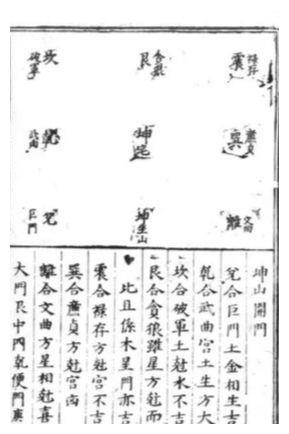 坎
破軍
艮
貪狼
震
祿存
乾
武曲
坤
巽
廉貞
兌
巨門
坤
坐山
離
文曲
坤山開門
兌合巨門土金相生吉
乾合武曲宮土生方大
坎合破軍土尅水不吉
艮合貪狼雖星方尅而
比且係木星門亦吉
震合祿存方尅宮不吉
巽合廉貞方尅宮凶
離合文曲方星相尅喜
大門艮中丙乾便門庚